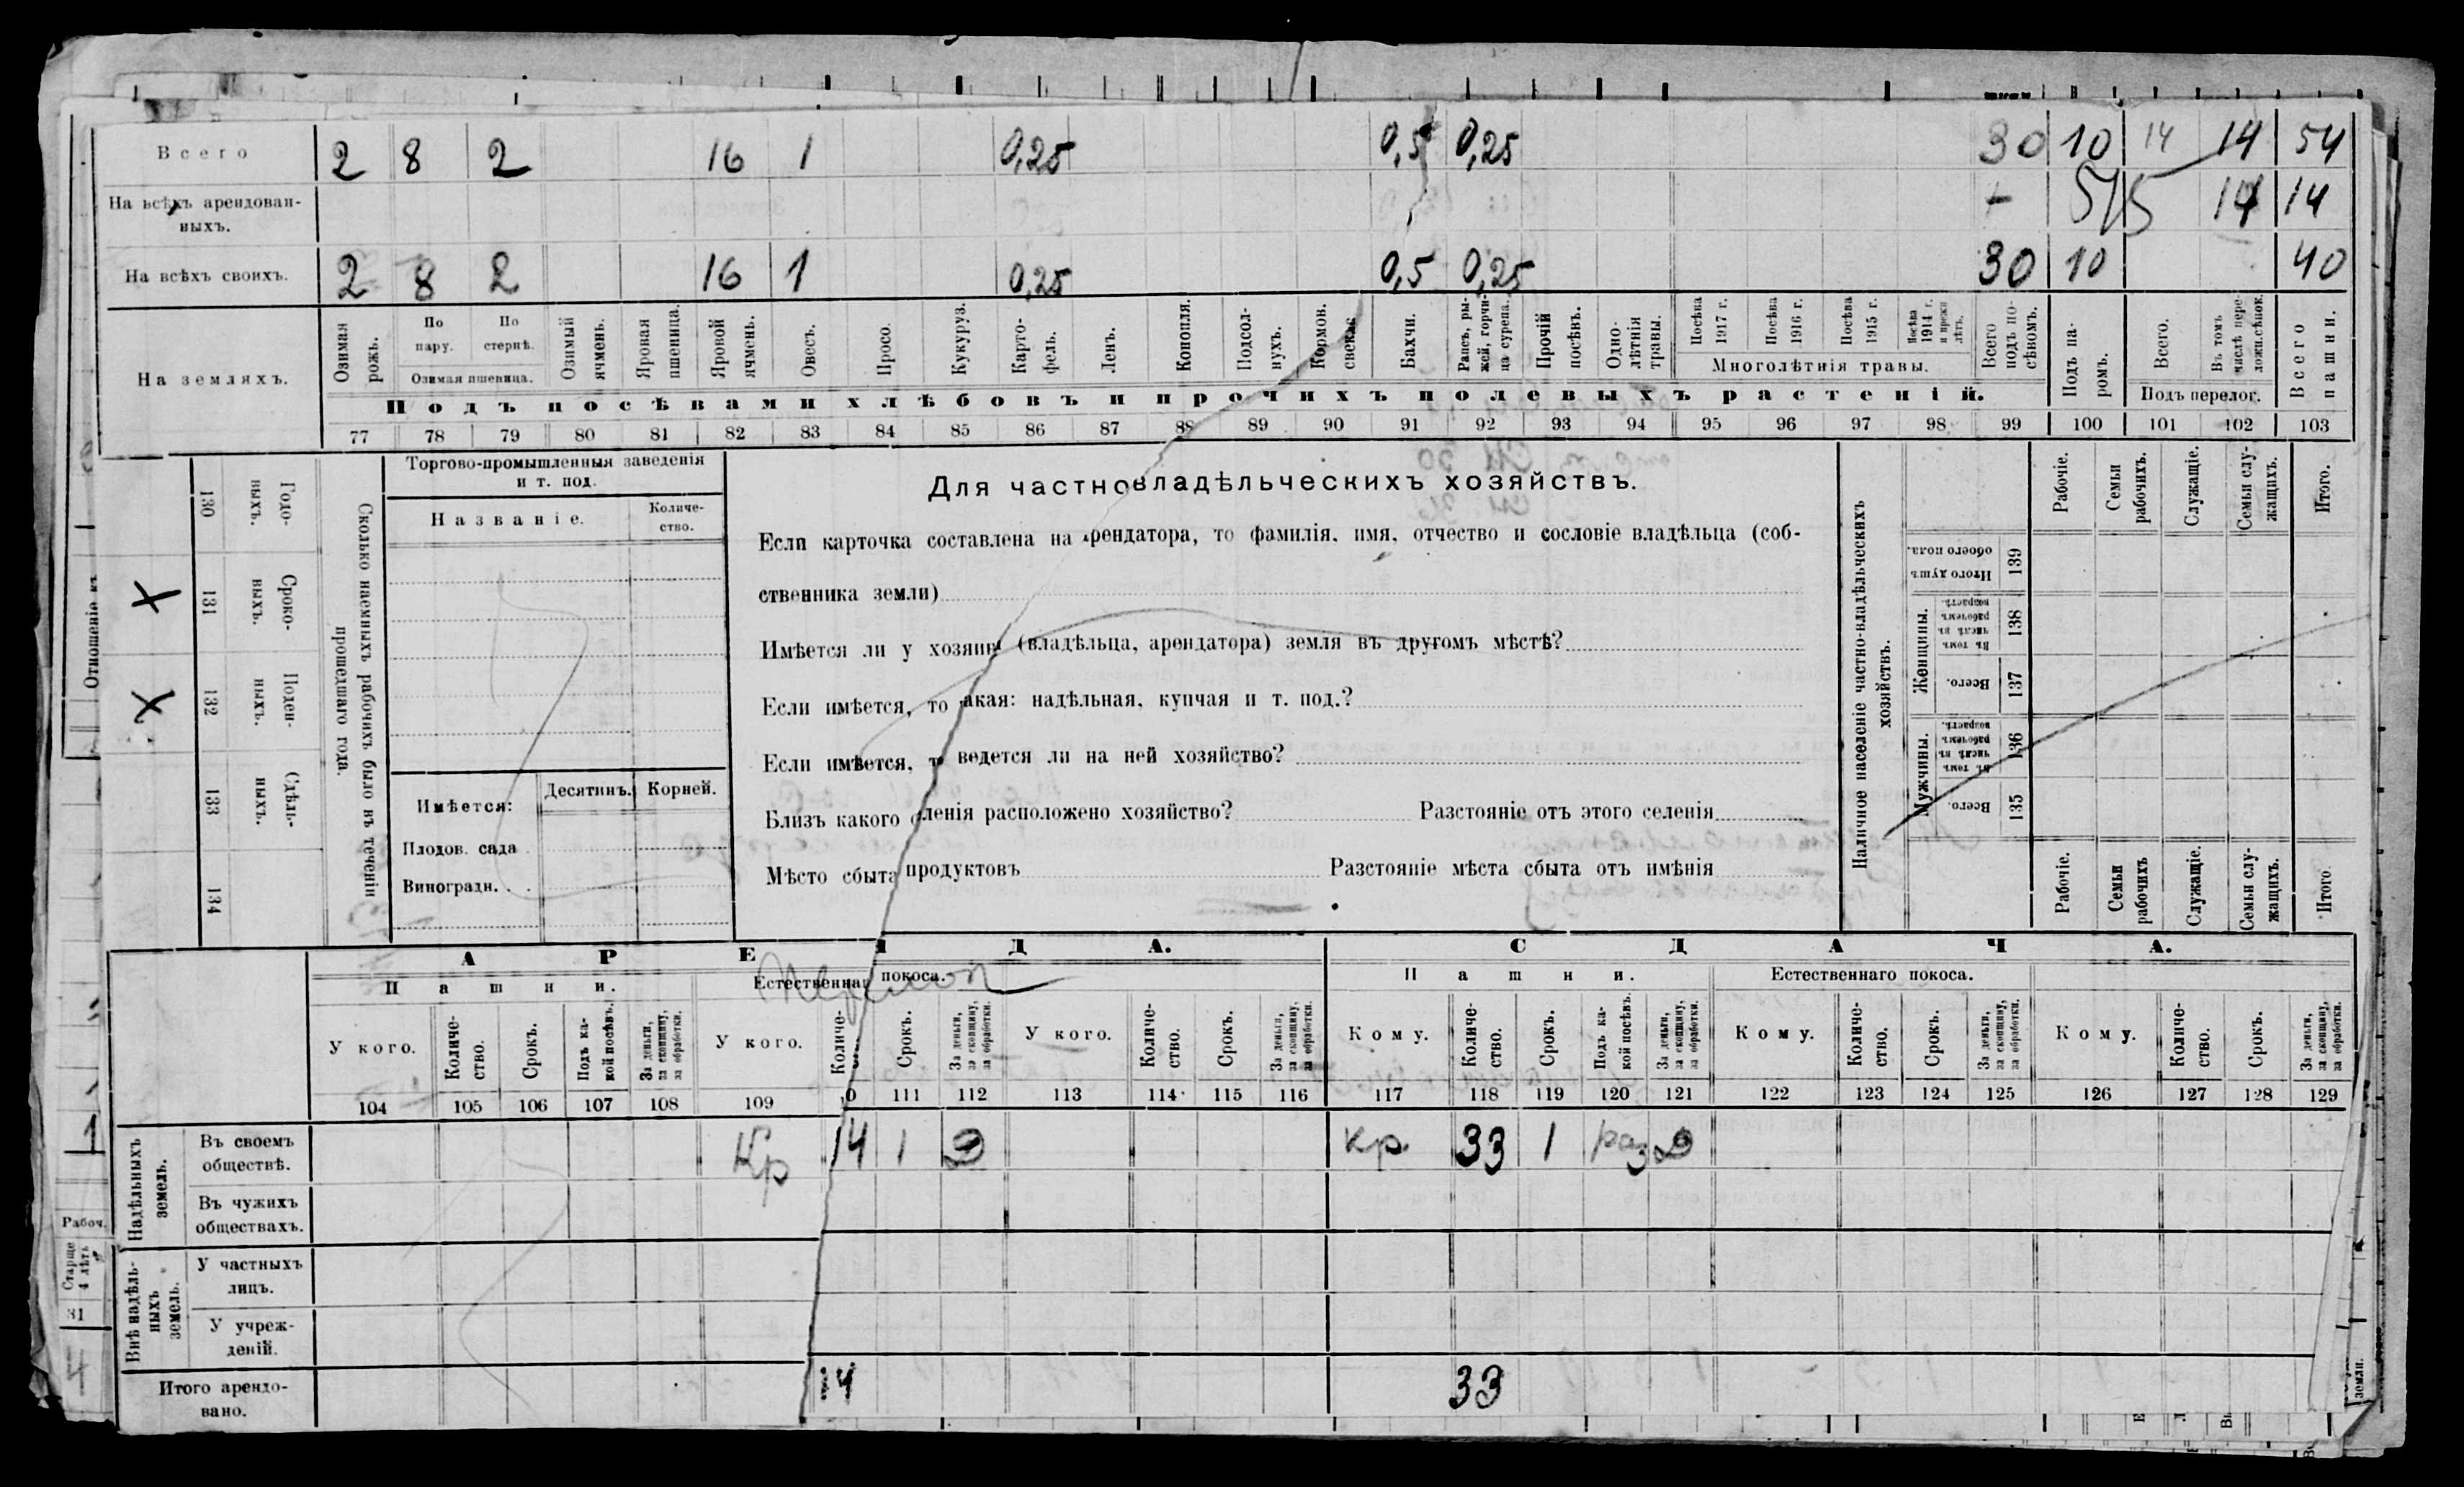 Всего 2 8 2 16 1 0,25 0,5 0,25 30 10 14 14 54
На всѣхъ арендован-
ныхъ. 14 14
На всѣхъ своихъ. 2 8 2 16 1 0,25 0,5 0,25 30 10 40
На земляхъ.
Озимая рожь.
По пару.
По стернѣ.
Озимая пшеница.
Озимый ячмень.
Яровая пшеница.
Яровой ячмень.
Овесъ.
Просо.
Кукуруз.
Карто-
фель.
Ленъ.
Конопля.
Подсол-
нухъ.
Кормов.
свекла
Бахчи.
Рапсъ, ры-
жей, горчи-
ца сурепа.
Прочій посѣвъ.
Одно-
лѣтнія травы.
Посѣва 1917 г.
Посѣва 1916 г.
Посѣва 1915 г.
Посѣва 1914 г. и прежн. лѣтъ.
Многолѣтнія травы.
Всего подъ по-
сѣвомъ.
Подъ посѣвами хлѣбовъ и прочихъ полевыхъ растеній.
Подъ па-
ромъ.
Всего.
Въ томъ числѣ пере-
ложн. сѣнок.
Подъ перелог.
Всего пашни.
77 78 79 80 81 82 83 84 85 86 87 88 89 90 91 92 93 94 95 96 97 98 99 100 101 102 103
Отношеніе къ
X
X
130 131 132 133 134
Годо-
выхъ.
Сроко-
выхъ.
Поден-
ныхъ.
Сдѣль-
ныхъ.
Сколько наемныхъ рабочихъ было въ теченіи
прошедшаго года.
Торгово-промышленныя заведенія
и т. под.
Названіе.
Количе-
ство.
Имѣется:
Десятинъ. Корней.
Плодов. сада
Виноградн. . .
Для частновладѣльческихъ хозяйствъ.
Если карточка составлена на арендатора, то фамилія, имя, отчество и сословіе владѣльца (соб-
ственника земли)
Имѣется ли у хозяина (владѣльца, арендатора) земля въ другомъ мѣстѣ?
Если имѣется, то какая: надѣльная, купчая и т. под.?
Если имѣется, то ведется ли на ней хозяйство?
Близъ какого селенія расположено хозяйство? Разстояніе отъ этого селенія
Мѣсто сбыта продуктовъ Разстояніе мѣста сбыта отъ имѣнія
Наличное населеніе частно-владѣльческихъ
хозяйствъ.
Мужчины.
Женщины.
Всего.
Въ томъ числѣ въ рабочемъ возрастѣ.
Всего.
Въ томъ числѣ въ рабочемъ возрастѣ.
Итого душъ обоего пола.
135 136 137 138 139
Рабочіе.
Семьи рабочихъ.
Служащіе.
Семьи слу-
жащихъ.
Итого.
Рабочіе.
Семьи рабочихъ
Служащіе.
Семьи слу-
жащихъ.
Итого
АРЕНДА. СДАЧА.
Пашни. Естественнаго покоса. Пашни. Естественнаго покоса.
У кого.
Количе-
ство.
Срокъ.
Подъ ка-
кой посѣвъ.
За деньги, за скопщину, за обработки.
У кого.
Количе-
Срокъ.
За деньги, за скопщину, за обработки.
У кого.
Количе-
ство.
Срокъ.
За деньги, за скопщину, за обработки.
Кому.
Количе-
ство.
Срокъ.
Подъ ка-
кой посѣвъ.
За деньги, за скопщину, за обработки.
Кому.
Количе-
ство.
Срокъ.
За деньги, за скопщину, за обработки.
Кому.
Количе-
ство.
Срокъ.
За деньги, за скопщину, за обработки.
104 105 106 107 108 109 0 111 112 113 114 115 116 117 118 119 120 121 122 123 124 125 126 127 128 129
Надѣльныхъ земель.
Въ своемъ
обществѣ. Кр 14 1 Кр. 33 1 раз
Въ чужихъ
обществахъ.
Внѣ надѣль-
ныхъ земель.
У частныхъ
лицъ.
У учреж-
деній.
Итого арендо-
вано. 14 33
1
Рабоч.
Старше
4 лѣтъ
31
4
земли.